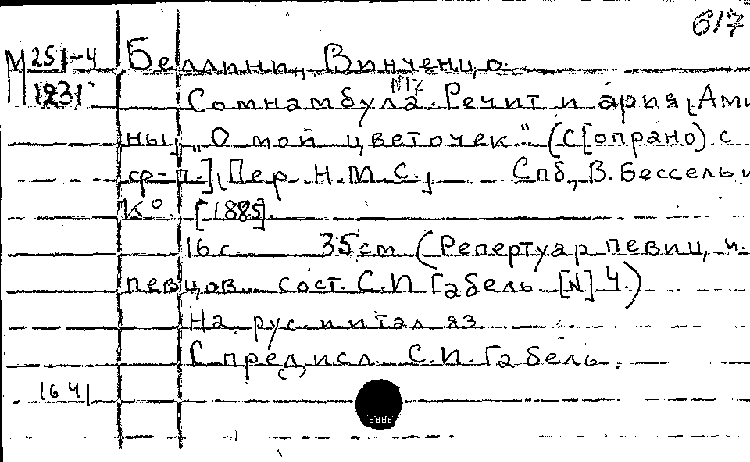 617
М 251-4 Беллини, Винченцо.
1231 Сомнамбула. №17 Речит и ария [Ами
ны] „О мой цветочек" (с[опрано] с
ф-п.] [Пер. Н.М.С.] Спб., В. Бессель и
К°. [1885].
16 с. 35 см (Репертуар певиц и
певцов. сост. С.И Габель [N] 4)
На рус. и итал яз.
С пред. исл. С.И. Габель.
1641